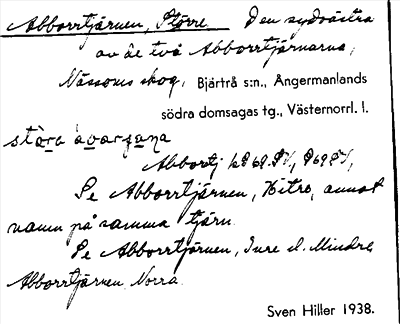 Abborrtjärnen, Större Den sydvästra
av de två Abborrtjärnarna,
Nässoms skog, Bjärtrå s:n., Ångermanlands
södra domsagas tg., Västernorrl. l.
stɷ̀ra
Abbortj
Se Abborrtjärnen, Yttre, annat
namn på samma tjärn.
Se Abborrtjärnen, Inre el. Mindre,
Abborrtjärnen Norra.
Sven Hiller 1938.